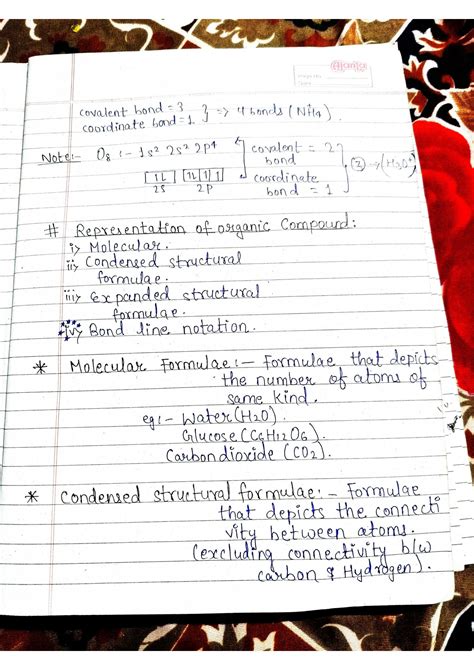 covalent bond = 3
coordinate bond = 1. } => 4 bonds (NH4)
Note:- O8 :- 1s² 2s² 2p⁴
covalent = 2
bond
coordinate
bond = 1
(H3O⁺)
2s 2p
# Representation of organic Compound:
i> Molecular.
ii> Condensed structural
formulae.
iii> Expanded structural
formulae.
iv> Bond line notation.
* Molecular Formulae :- Formulae that depicts
the number of atoms of
same kind.
eg:- Water (H2O).
Glucose (C6H12O6).
Carbondioxide (CO2).
* Condensed structural formulae: - Formulae
that depicts the connecti
vity between atoms.
(excluding connectivity b/w
carbon & Hydrogen).